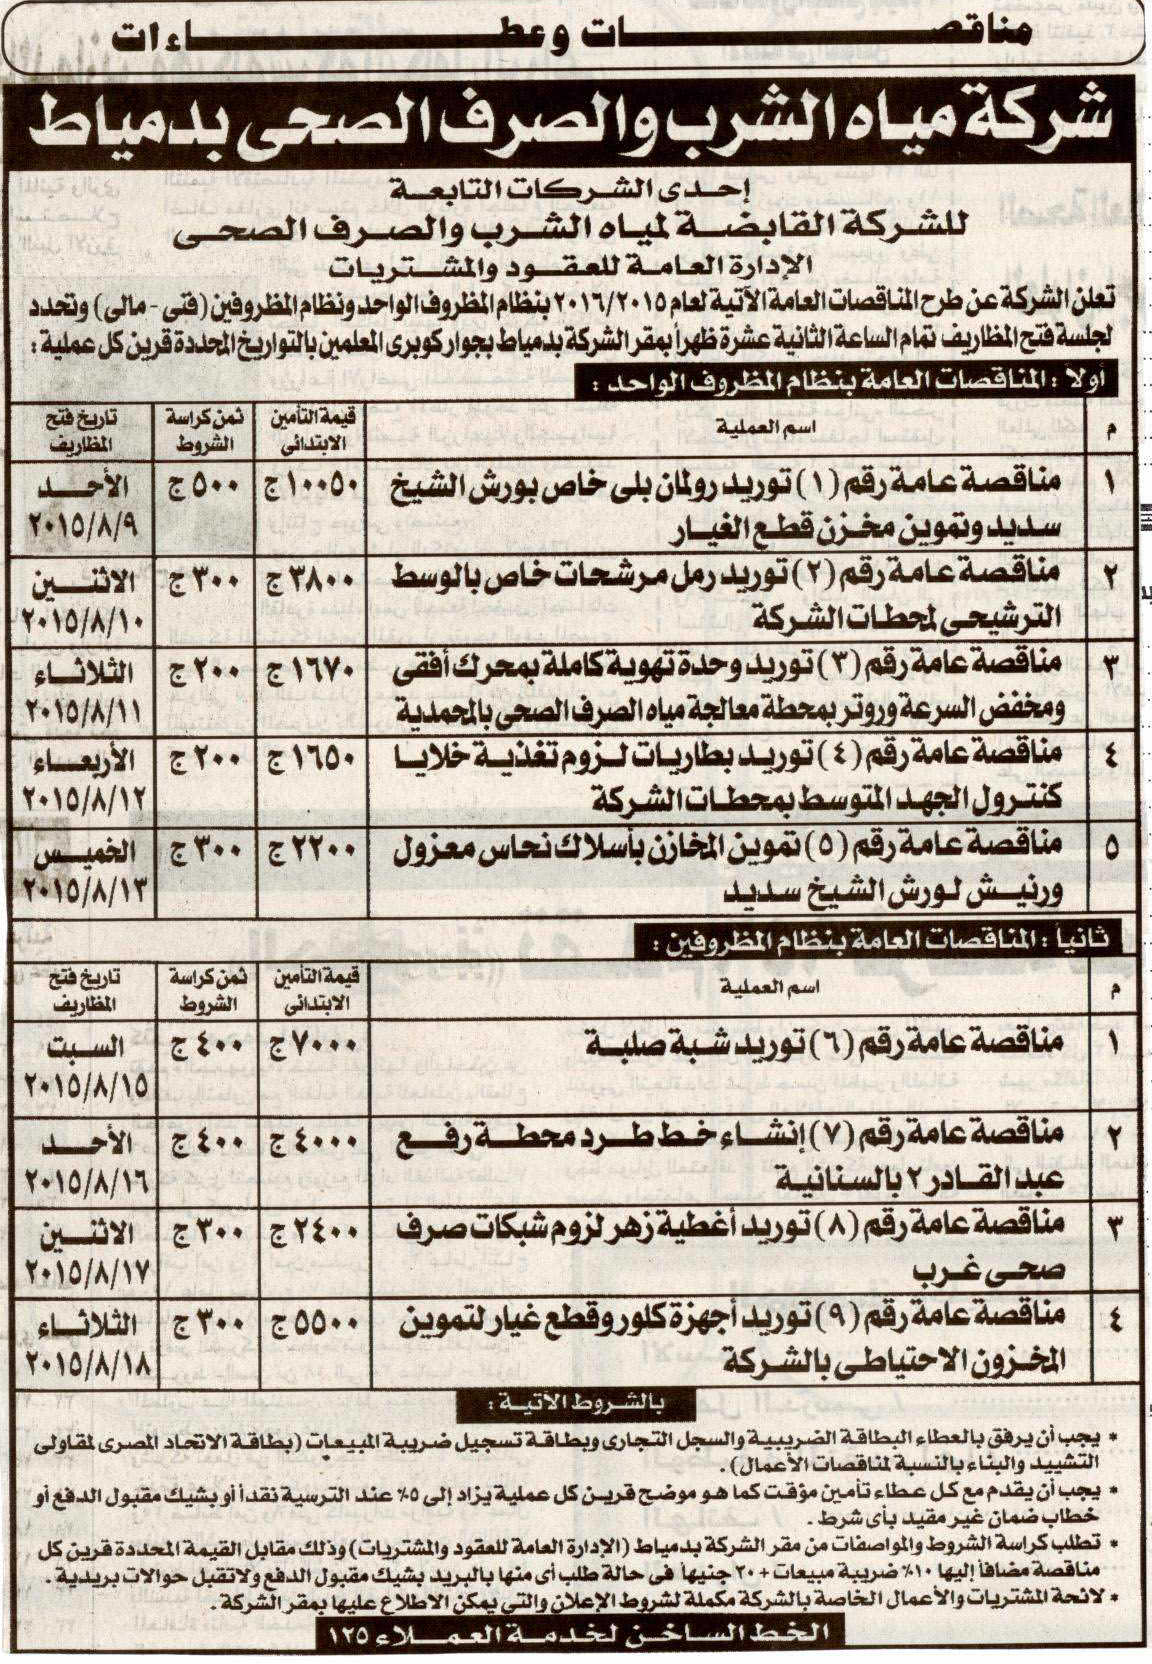 مناقصات وعطاءات
شركة مياه الشرب والصرف الصحى بدمياط
إحدى الشركات التابعة
للشركة القابضة لمياه الشرب والصرف الصحى
الإدارة العامة للعقود والمشتريات
تعلن الشركة عن طرح المناقصات العامة الآتية لعام ٢٠١٦/٢٠١٥ بنظام المظروف الواحد ونظام المظروفين (فنى - مالى) وتحدد
لجلسة فتح المظاريف تمام الساعة الثانية عشرة ظهراً بمقر الشركة بدمياط بجوار كوبرى المعلمين بالتواريخ المحددة قرين كل عملية :
أولا : المناقصات العامة بنظام المظروف الواحد :
م اسم العملية قيمة التأمين الابتدائى ثمن كراسة الشروط تاريخ فتح المظاريف
١ مناقصة عامة رقم (١) توريد رولمان بلى خاص بورش الشيخ ١٠٠٥٠ ج ٥٠٠ ج الأحد
سديد وتموين مخزن قطع الغيار ٢٠١٥/٨/٩
٢ مناقصة عامة رقم (٢) توريد رمل مرشحات خاص بالوسط ٣٨٠٠ ج ٣٠٠ ج الاثنين
الترشيحى لمحطات الشركة ٢٠١٥/٨/١٠
٣ مناقصة عامة رقم (٣) توريد وحدة تهوية كاملة بمحرك أفقى ١٦٧٠ ج ٢٠٠ ج الثلاثاء
ومخفض السرعة وروتر بمحطة معالجة مياه الصرف الصحى بالمحمدية ٢٠١٥/٨/١١
٤ مناقصة عامة رقم (٤) توريد بطاريات لزوم تغذية خلايا ١٦٥٠ ج ٢٠٠ ج الأربعاء
كنترول الجهد المتوسط بمحطات الشركة ٢٠١٥/٨/١٢
٥ مناقصة عامة رقم (٥) تموين المخازن بأسلاك نحاس معزول ٢٢٠٠ ج ٣٠٠ ج الخميس
ورنيش لورش الشيخ سديد ٢٠١٥/٨/١٣
ثانياً : المناقصات العامة بنظام المظروفين :
م اسم العملية قيمة التأمين الابتدائى ثمن كراسة الشروط تاريخ فتح المظاريف
١ مناقصة عامة رقم (٦) توريد شبة صلبة ٧٠٠٠ ج ٤٠٠ ج السبت
٢٠١٥/٨/١٥
٢ مناقصة عامة رقم (٧) إنشاء خط طرد محطة رفع ٤٠٠٠ ج ٤٠٠ ج الأحد
عبد القادر ٢ بالسنانية ٢٠١٥/٨/١٦
٣ مناقصة عامة رقم (٨) توريد أغطية زهر لزوم شبكات صرف ٢٤٠٠ ج ٣٠٠ ج الاثنين
صحى غرب ٢٠١٥/٨/١٧
٤ مناقصة عامة رقم (٩) توريد أجهزة كلور وقطع غيار لتموين ٥٥٠٠ ج ٣٠٠ ج الثلاثاء
المخزون الاحتياطى بالشركة ٢٠١٥/٨/١٨
بالشروط الآتية :
* يجب أن يرفق بالعطاء البطاقة الضريبية والسجل التجارى وبطاقة تسجيل ضريبة المبيعات (بطاقة الاتحاد المصرى لمقاولى
التشييد والبناء بالنسبة لمناقصات الأعمال) .
* يجب أن يقدم مع كل عطاء تأمين مؤقت كما هو موضح قرين كل عملية يزاد إلى ٥٪ عند الترسية نقداً أو بشيك مقبول الدفع أو
خطاب ضمان غير مقيد بأى شرط .
* تطلب كراسة الشروط والمواصفات من مقر الشركة بدمياط (الإدارة العامة للعقود والمشتريات) وذلك مقابل القيمة المحددة قرين كل
مناقصة مضافاً إليها ١٠٪ ضريبة مبيعات + ٢٠ جنيهاً فى حالة طلب أى منها بالبريد بشيك مقبول الدفع ولا تقبل حوالات بريدية .
* لائحة المشتريات والأعمال الخاصة بالشركة مكملة لشروط الإعلان والتي يمكن الاطلاع عليها بمقر الشركة .
الخط الساخن لخدمة العملاء ١٢٥